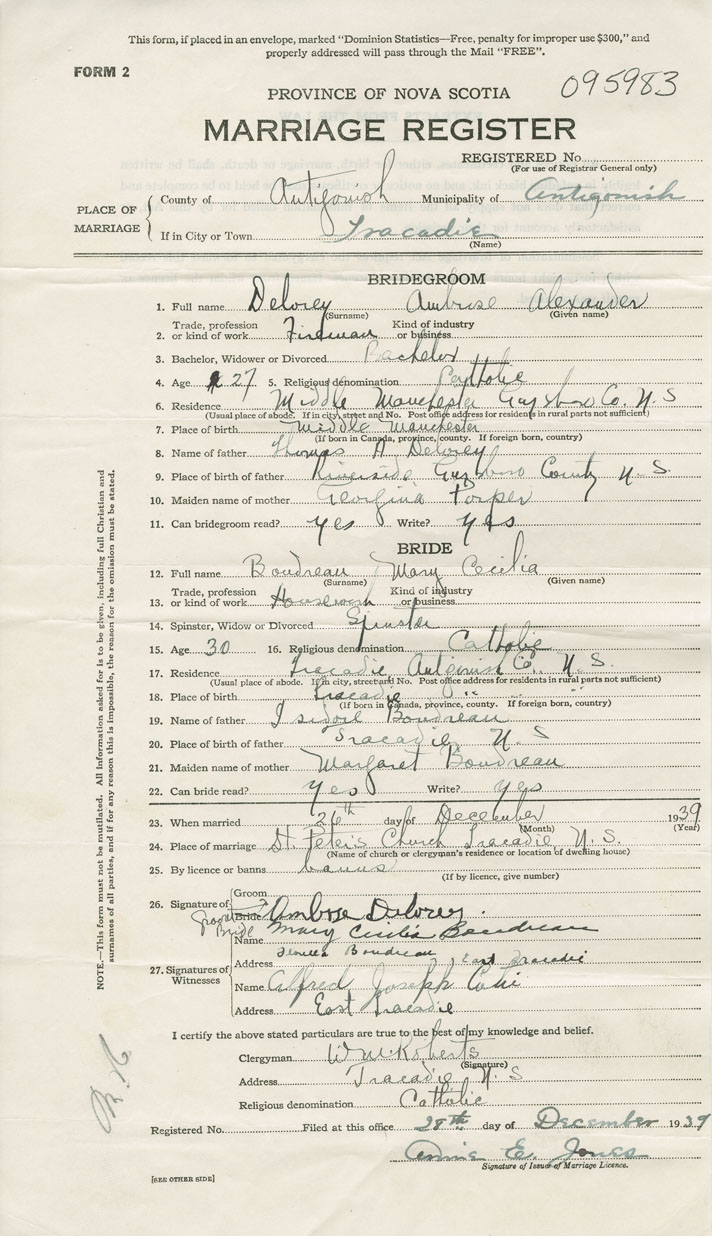 This form, if placed in an envelope, marked "Dominion Statistics—Free, penalty for improper use $300," and
properly addressed will pass through the Mail "FREE".
FORM 2
095983
PROVINCE OF NOVA SCOTIA
MARRIAGE REGISTER
REGISTERED No.
(For use of Registrar General only)
PLACE OF MARRIAGE
County of Antigonish Municipality of Antigonish
If in City or Town Tracadie
(Name)
BRIDEGROOM
1. Full name Delorey Ambrose Alexander
(Surname) (Given name)
2. Trade, profession or kind of work Fireman Kind of industry or business
3. Bachelor, Widower or Divorced Bachelor
4. Age 27 5. Religious denomination Catholic
6. Residence Middle Manchester Guysboro Co. N S
(Usual place of abode. If in city, street and No. Post office address for residents in rural parts not sufficient)
7. Place of birth Middle Manchester
(If born in Canada, province, county. If foreign born, country)
8. Name of father Thomas A Delorey
9. Place of father Riverside Guysboro County N. S.
10. Maiden name of mother Georgina
11. Can bridegroom read? Yes Write? Yes
BRIDE
12. Full name Boudreau Mary Cecilia
(Surname) (Given name)
13. Trade, profession or kind of work Housework Kind of industry or business
14. Spinster, Widow or Divorced Spinster
15. Age 30 16. Religious denomination Catholic
17. Residence Tracadie Antigonish Co. N. S.
(Usual place of abode. If in city, street and No. Post office address for residents in rural parts not sufficient)
18. Place of birth Tracadie " " "
(If born in Canada, province, county. If foreign born, country)
19. Name of father Boudreau
20. Place of birth of father Tracadie N. S
21. Maiden name of mother Margaret Boudreau
22. Can bride read? Yes Write? Yes
23. When married 26th day of December 1939
(Month) (Year)
24. Place of marriage St. Peter's Church Tracadie N. S.
(Name of church or clergyman's residence or location of dwelling house)
25. By licence or banns banns
(If by licence, give number)
26. Signature of
Groom
Groom Bride Ambrose Delorey.
Bride Mary Cecilia Boudreau
27. Signatures of Witnesses
Name
Address Boudreau East Tracadie
Name Alfred Joseph
Address East Tracadie
I certify the above stated particulars are true to the best of my knowledge and belief.
Clergyman W. M. Roberts
(Signature)
Address Tracadie N. S
Religious denomination Catholic
Registered No. Filed at this office 28th day of December 1939
Annie E. Jones
Signature of Issuer of Marriage Licence.
[SEE OTHER SIDE]
NOTE.—This form must not be mutilated. All information asked for is to be given, including full Christian and
surnames of all parties, and if for any reason this is impossible, the reason for the omission must be stated.